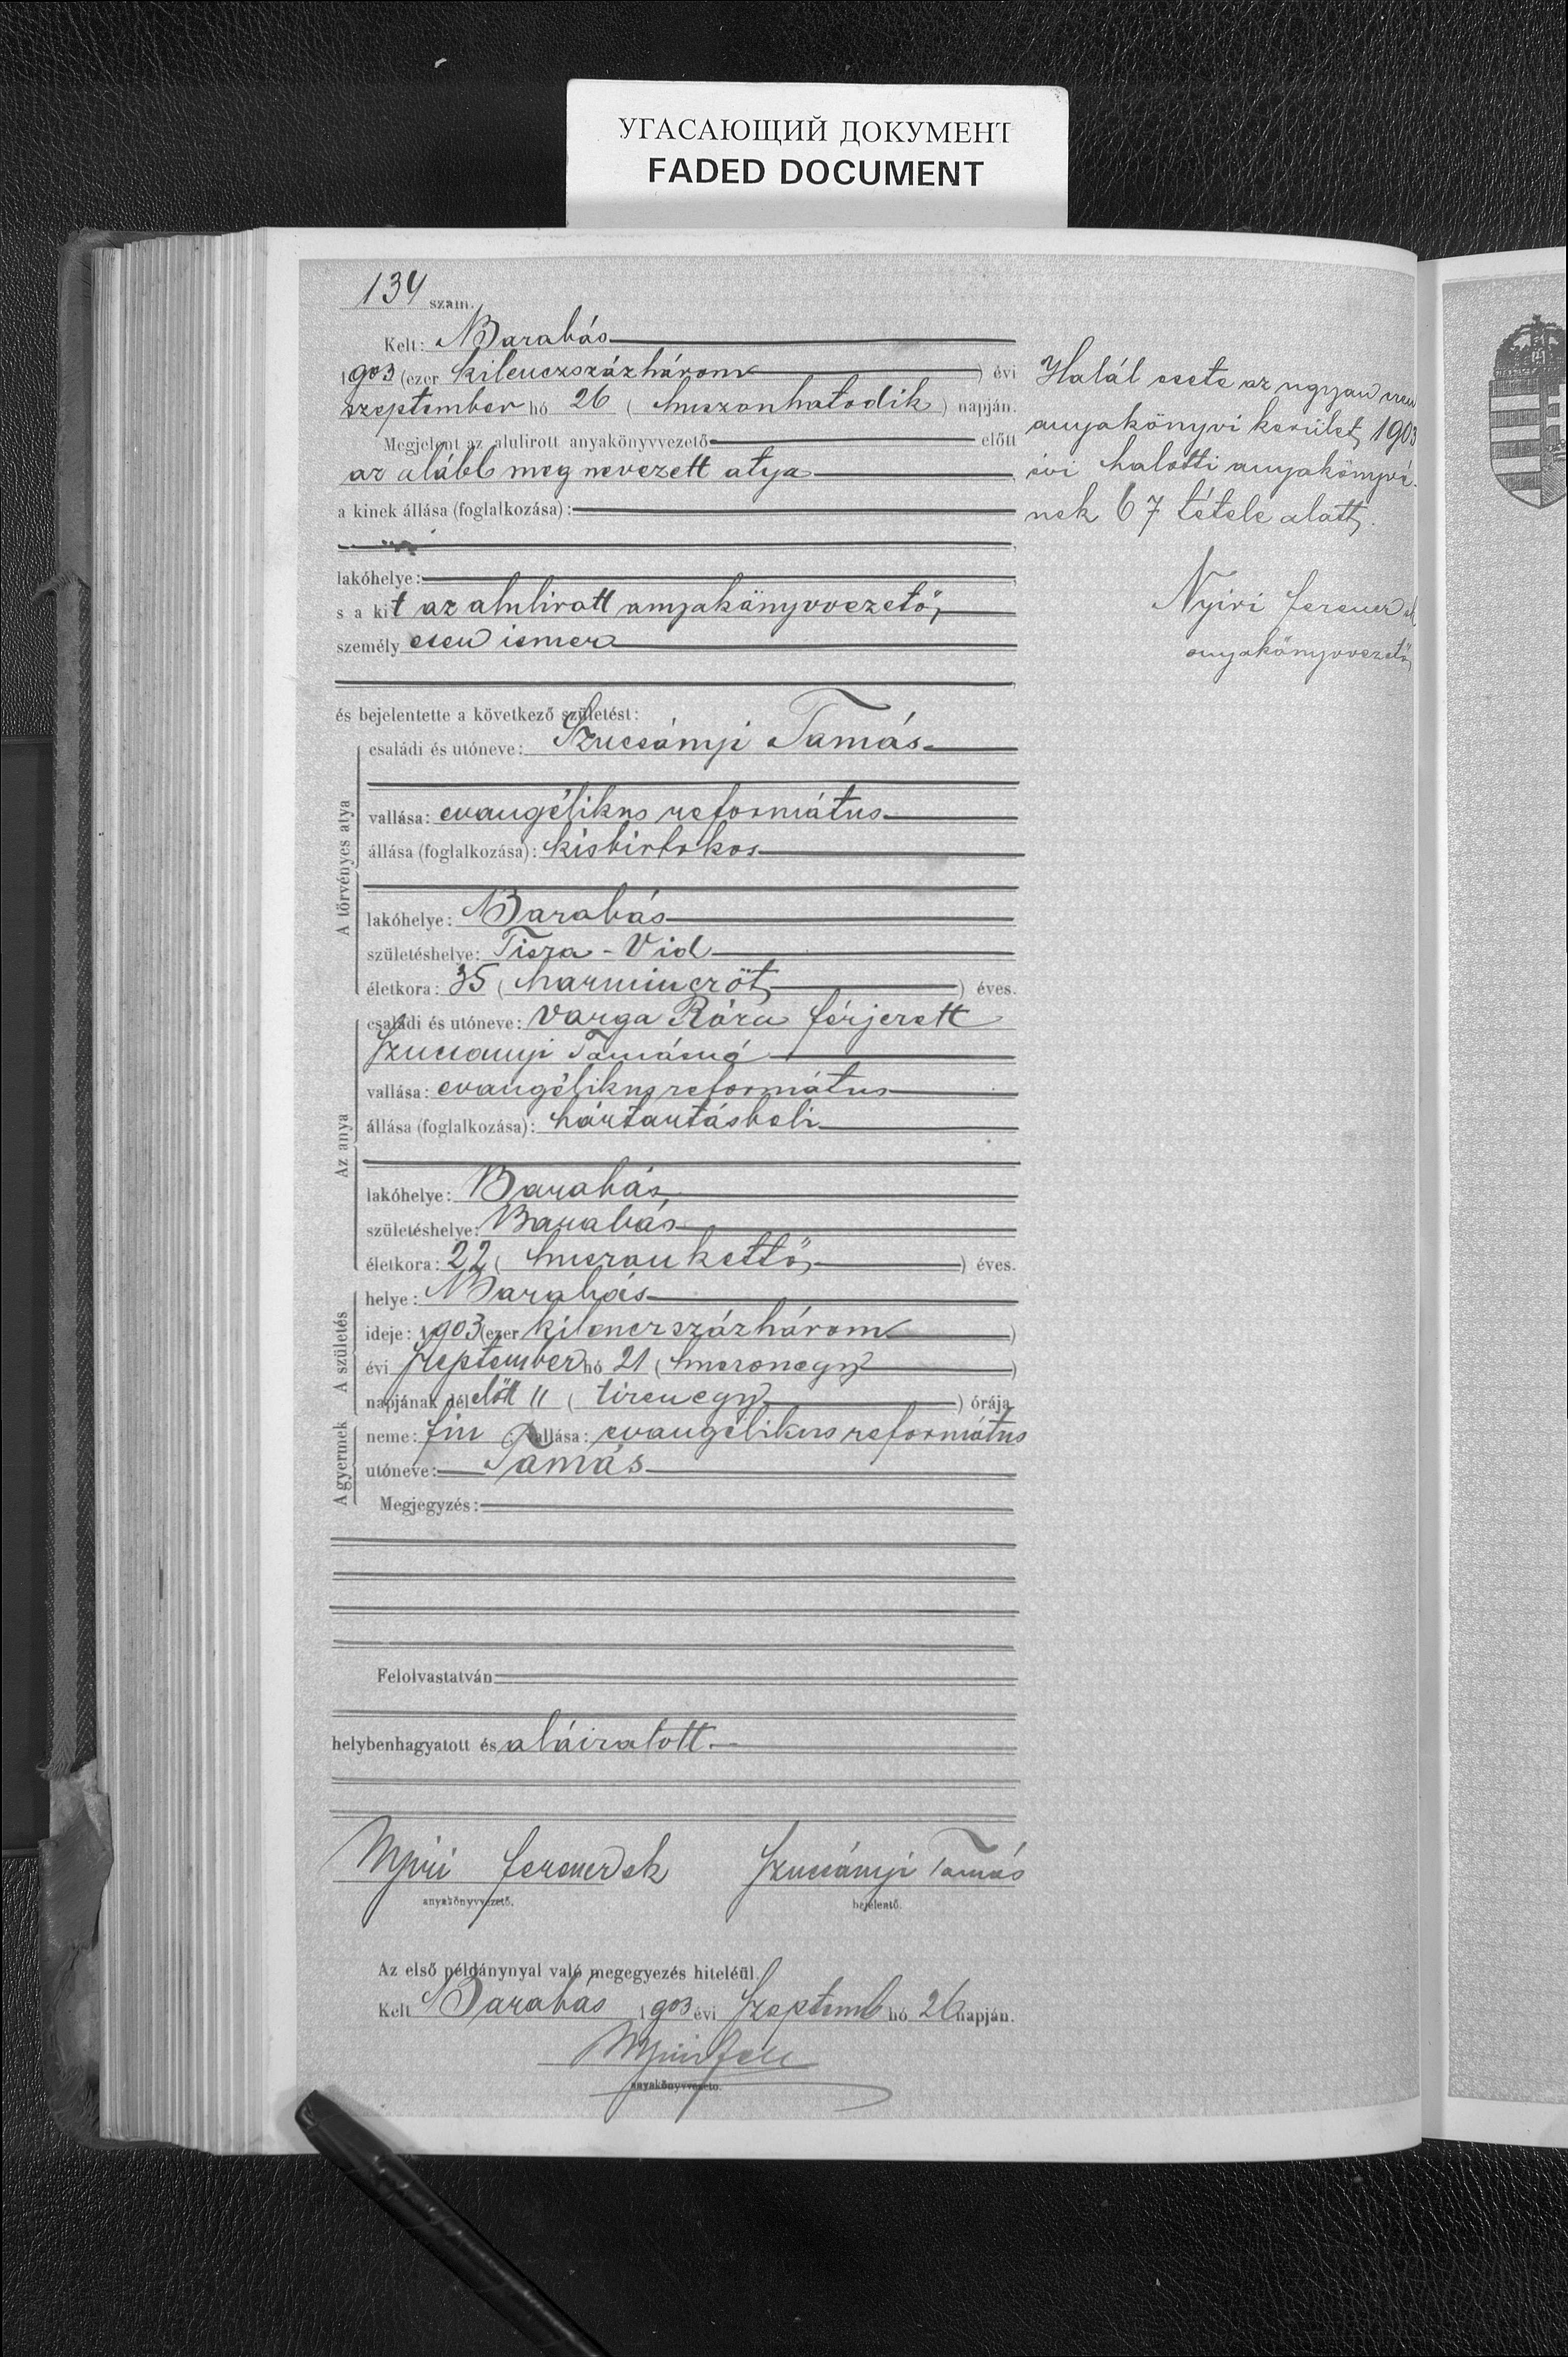 УГАСАЮЩИЙ ДОКУМЕНТ
FADED DOCUMENT
134 szám.
Kelt: Barabás
1903 (ezer kilenczszázhárom) évi
szeptember hó 26 (huszonhatodik) napján.
Megjelent az alulirott anyakönyvvezető előtt
az alább meg nevezett atya
a kinek állása (foglalkozása):
lakóhelye:
s a kit az alulirott anyakönyvvezető,
személyesen ismer
és bejelentette a következő születést:
A törvényes atya
családi és utóneve: Szucsányi Tamás
vallása: evangélikus református
állása (foglalkozása): kisbirtokos
lakóhelye: Barabás
születéshelye: Tisza-Vid
életkora: 35 (harminczöt) éves.
Az anya
családi és utóneve: Varga Róza férjezett
Szucsanyi Tamásné
vallása: evangélikus református
állása (foglalkozása): háztartásbeli
lakóhelye: Barabás
születéshelye: Barabás
életkora: 22 (huszonkettő) éves.
A születés
helye: Barabás
ideje: 1903 (ezer kilenczszázhárom)
évi Szeptember hó 21 (huszonegy)
napjának délelőtt 11 (tizenegy) órája
A gyermek
neme: fiu vallása: evangélikus református
utóneve: Tamás
Megjegyzés:
Felolvastatván
helybenhagyatott és aláiratott.
Nyiri Ferencz ek Szucsányi Tamás
anyakönyvvezető. bejelentő.
Az első példánynyal való megegyezés hiteléül.
Kelt Barabás 1903 évi Szeptemb hó 26 napján.
Nyiri
anyakönyvvezető.
Halál esete az ugyan ezen
anyakönyvi kerület, 1903
évi halotti anyakönyvé-
nek 67 tétele alatt.
Nyiri Ferencz
anyakönyvvezető